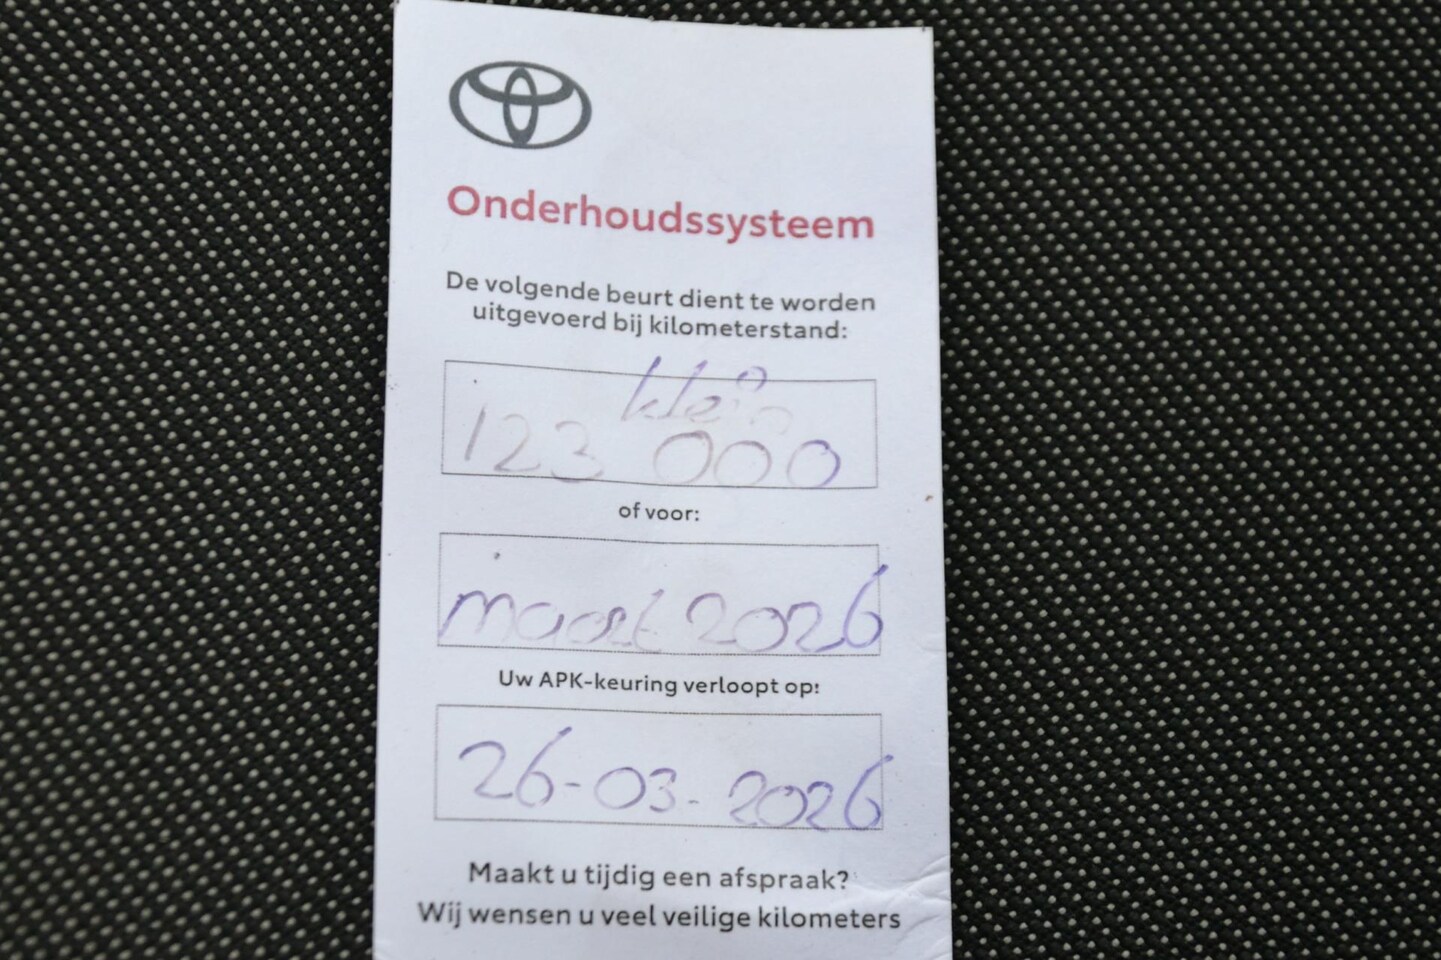 Onderhoudssysteem
De volgende beurt dient te worden
uitgevoerd bij kilometerstand:
klein
123 000
of voor:
maart 2026
Uw APK-keuring verloopt op:
26-03-2026
Maakt u tijdig een afspraak?
Wij wensen u veel veilige kilometers